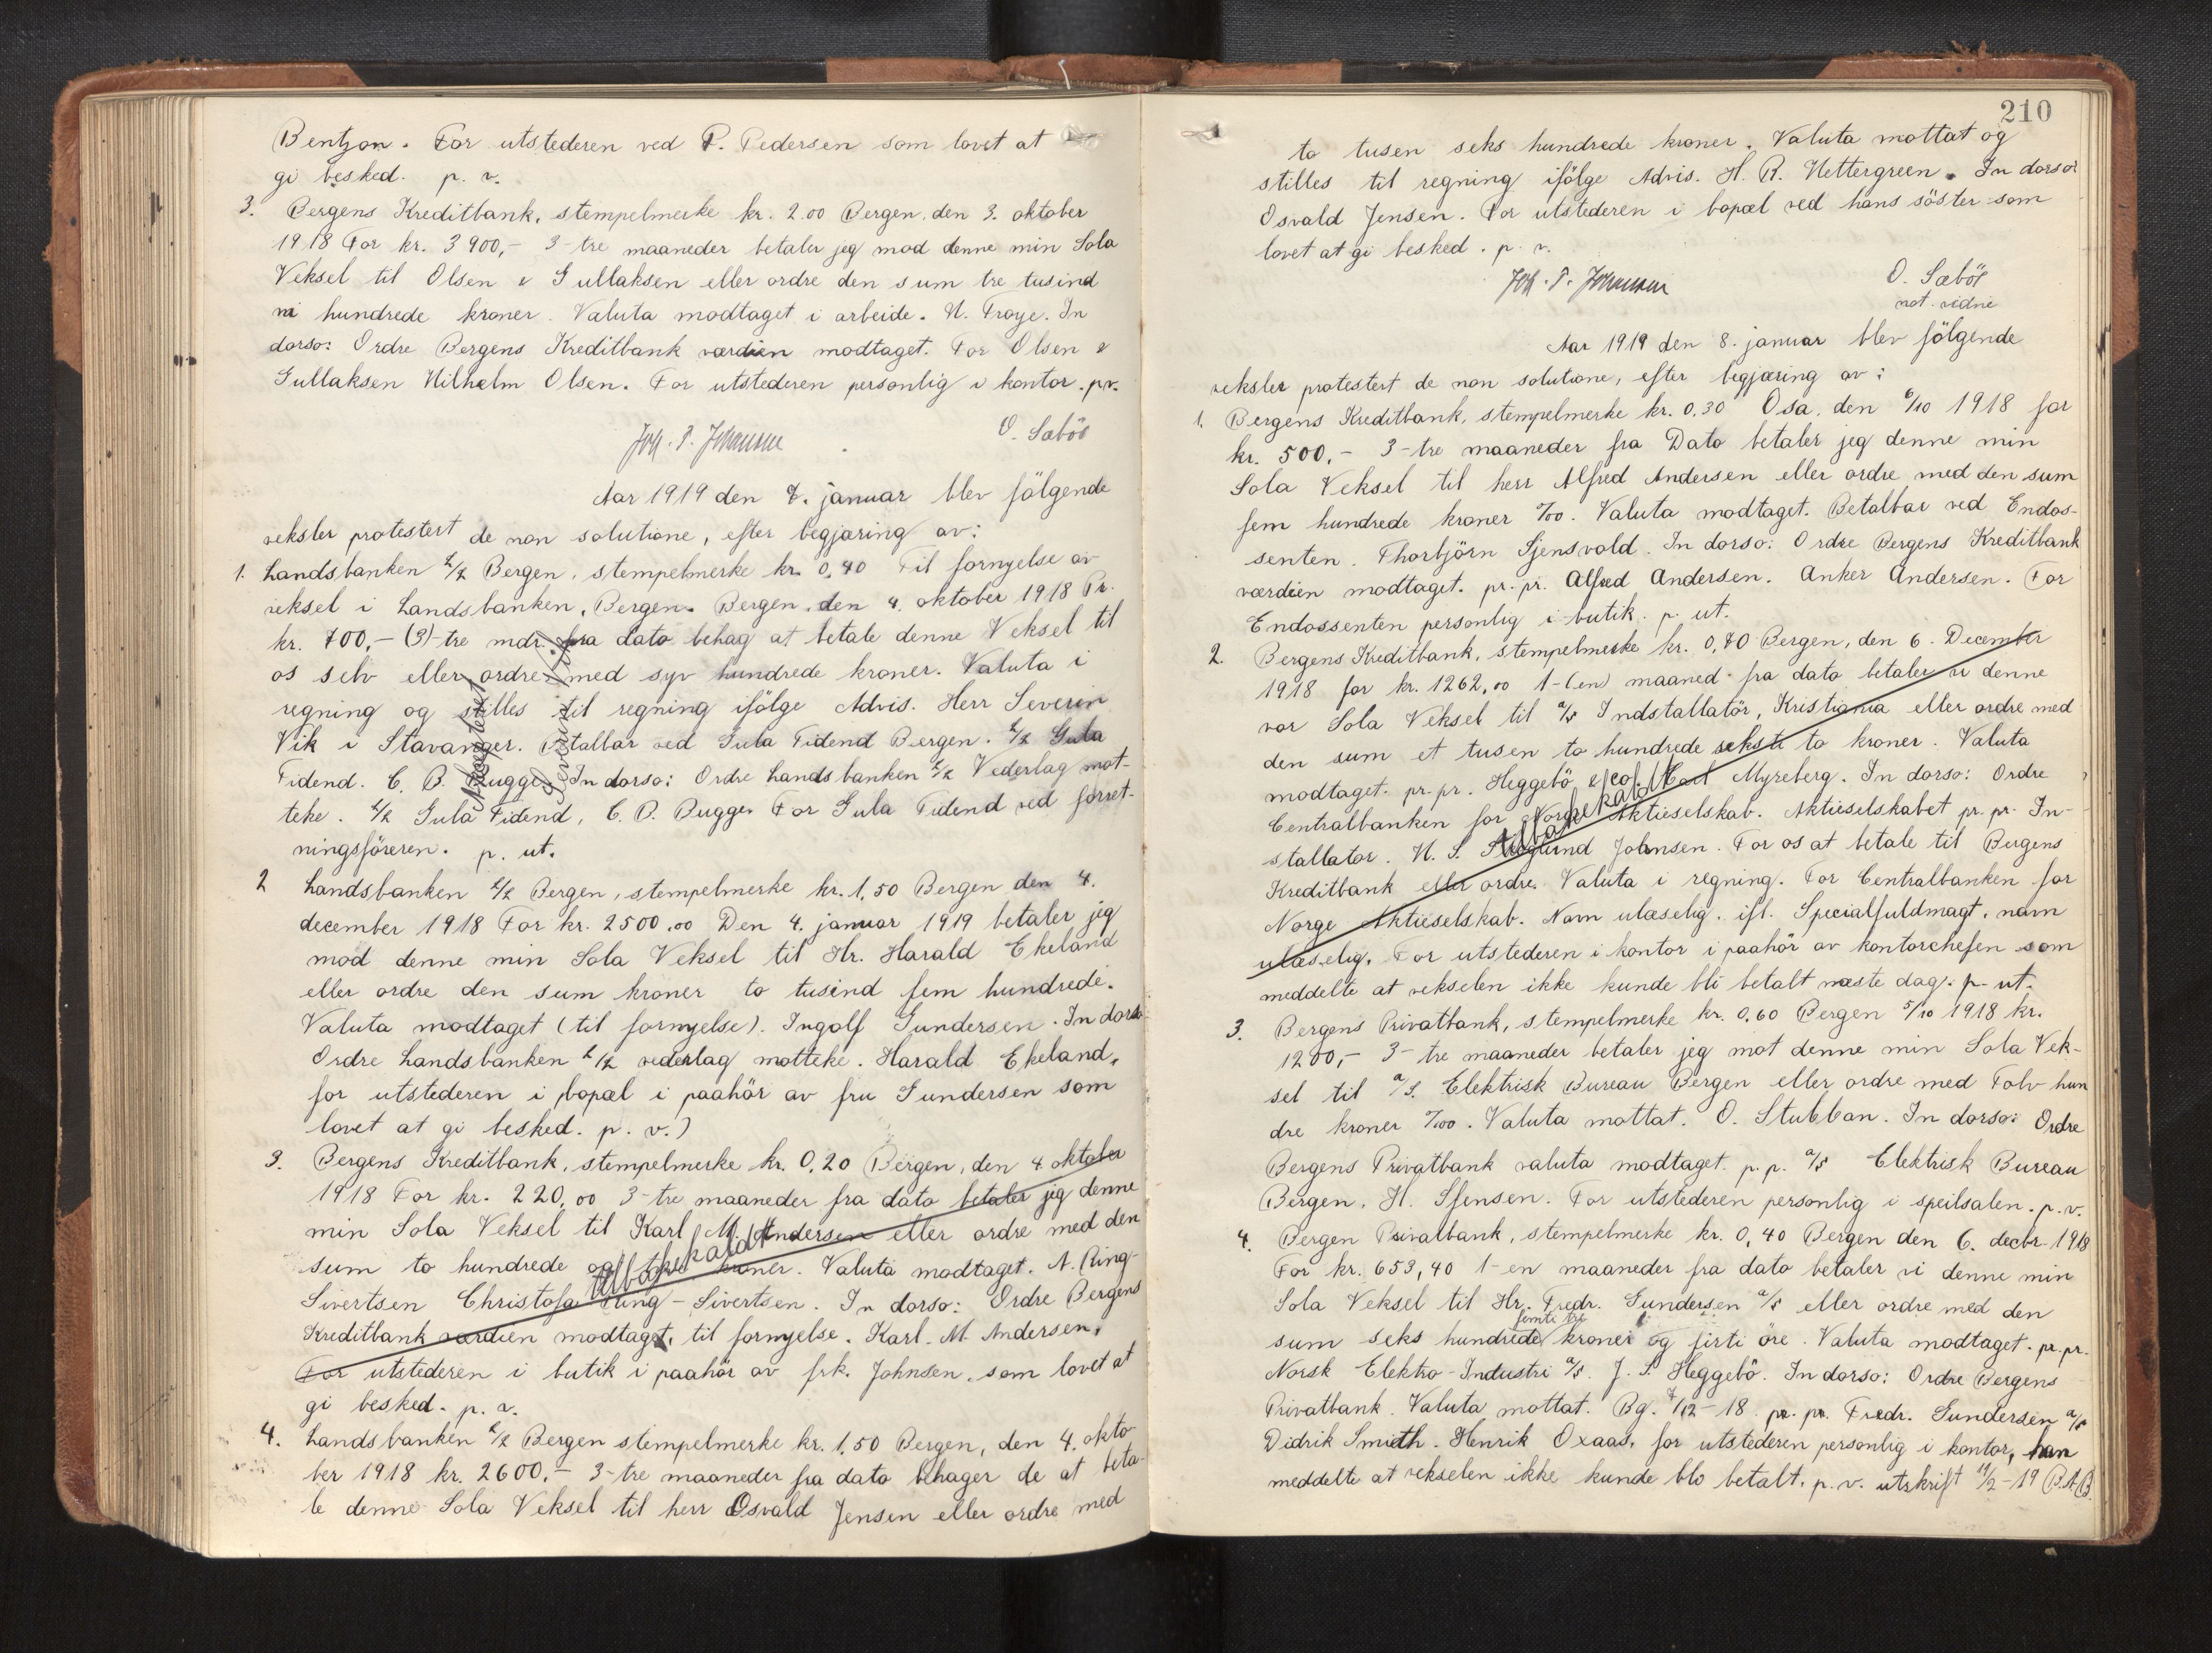 Bentzon. For utstederen ved P. Pedersen som lovet at
gi besked. p. v.
3. Bergens Kreditbank, stempelmerke kr. 2.00 Bergen, den 3. oktober
1918 For kr. 3900,- 3-tre maaneder betaler jeg mod denne min Sola
Veksel til Olsen & Gullaksen eller ordre den sum tre tusind
ni hundrede kroner. Valuta modtaget i arbeide. N. Troye. In
dorso: Ordre Bergens Kreditbank værdien modtaget. For Olsen &
Gullaksen Wilhelm Olsen. For utstederen personlig i kontor. p.v.
O. Sæbös
Aar 1919 den 7. januar blev fölgende
veksler protestert de non solutione, efter begjæring av:
1. Landsbanken L/L Bergen, stempelmerke kr. 0,40 Til fornyelse av
veksel i Landsbanken, Bergen. Bergen, den 4. oktober 1918 Pr.
kr. 700,- (3)-tre mdr. fra dato behag at betale denne Veksel til
os selv eller ordre med syv hundrede kroner. Valuta i
regning og stilles til regning ifölge Advis. Herr Severin
Vik i Stavanger. Betalbar ved Gula Tidend Bergen. L/L Gula
Tidend. C. B. Bugge. In dorso: Ordre Landsbanken L/L Vederlag mot-
teke. L/L Gula Tidend, C. B. Bugge. For Gula Tidend ved forret-
ningsföreren. p. ut.
Akcepteret
Severin Vik
2 Landsbanken L/L Bergen, stempelmerke kr. 1,50 Bergen den 4.
december 1918 For kr. 2500.00 Den 4. januar 1919 betaler jeg
mod denne min Sola Veksel til Hr. Harald Ekeland
eller ordre den sum kroner to tusind fem hundrede.
Valuta modtaget (til fornyelse). Ingolf Gundersen. In dorso
Ordre Landsbanken L/L vederlag motteke. Harald Ekeland,
for utstederen i bopæl i paahör av fru Gundersen som
lovet at gi besked. p. v.)
3. Bergens Kreditbank, stempelmerke kr. 0,20 Bergen, den 4 oktober
1918 For kr. 220,00 3-tre maaneder fra dato betaler jeg denne
min Sola Veksel til Karl M. Andersen eller ordre med den
sum to hundrede og kroner. Valuta modtaget. A. Ring-
Sivertsen Christofa Ring-Sivertsen. In dorso: Ordre Bergens
Kreditbank værdien modtaget, til fornyelse. Karl. M. Andersen,
For utstederen i butik i paahör av frk. Johnsen, som lovet at
gi besked. p. v.
tilbakekaldt
4. Landsbanken L/L Bergen stempelmerke kr. 1,50 Bergen, den 4. okto
ber 1918 kr. 2600,- 3-tre maaneder fra dato behager de at beta-
le denne Sola Veksel til herr Osvald Jensen eller ordre med
210
to tusen seks hundrede kroner. Valuta mottat og
stilles til regning ifölge Advis. H. R. Wettergreen. In dorso:
Osvald Jensen. For utstederen i bopæl ved hans söster som
lovet at gi besked. p. v.
O. Sæbös
not. vidne
Aar 1919 den 8. januar blev fölgende
veksler protestert de non solutione, efter begjæring av:
1. Bergens Kreditbank, stempelmerke kr. 0,30 Osa, den 6/10 1918 for
kr. 500,- 3-tre maaneder fra Dato betaler jeg denne min
Sola Veksel til herr Alfred Andersen eller ordre med den sum
fem hundrede kroner %00. Valuta modtaget. Betalbar ved Endos-
senten. Thorbjörn Sjensvold. In dorso: Ordre Bergens Kreditbank
værdien modtaget. pr. pr. Alfred Andersen. Anker Andersen. For
Endossenten personlig i butik. p. ut.
2. Bergens Kreditbank, stempelmerke kr. 0,70 Bergen, den 6. December
1918 for kr. 1262,00 1-(en) maaned fra dato betaler vi denne
vor Sola Veksel til a/s Indstallatör, Kristiania eller ordre med
den sum et tusen to hundrede seksti to kroner. Valuta
modtaget. pr. pr. Heggebö & co. Carl Myreberg. In dorso: Ordre
Centralbanken for Norge Aktieselskab. Aktieselskabet pr. pr. In-
stallator. N. S. Johnsen. For os at betale til Bergens
Kreditbank eller ordre. Valuta i regning. For Centralbanken for
Norge Aktieselskab. Navn ulæselig. ifl. Specialfuldmagt, navn
ulæselig. For utstederen i kontor i paahör av kontorchefen som
meddelte at vekselen ikke kunde bli betalt næste dag. p. ut.
tilbakekaldt
3. Bergens Privatbank, stempelmerke kr. 0,60 Bergen 5/10 1918 kr.
1200,- 3-tre maaneder betaler jeg mot denne min Sola Vek-
sel til a/s. Elektrisk Bureau Bergen eller ordre med Tolv hun
dre kroner %00. Valuta mottat. O. Stubban. In dorso: Ordre
Bergens Privatbank valuta modtaget. p. p. a/s Elektrisk Bureau
Bergen. H. For utstederen personlig i speilsalen. p. v.
4. Bergen Privatbank, stempelmerke kr. 0,40 Bergen den 6. decbr. 1918
For kr. 653,40 1-en maaneder fra dato betaler vi denne min
Sola Veksel til Hr. Fredr. Gundersen a/s eller ordre med den
femti tre
sum seks hundrede kroner og firti öre. Valuta modtaget. pr. pr.
Norsk Elektro-Industri a/s. J. S. Heggebö. In dorso: Ordre Bergens
Privatbank. Valuta mottat. Bg. 7/12-18 pr. pr. Fredr. Gundersen a/s
Didrik Smith. Henrik Oxaas, for utstederen personlig i kontor, han
meddelte at vekselen ikke kunde blo betalt. p. v. utskrift 11/2-19 B.A.B.